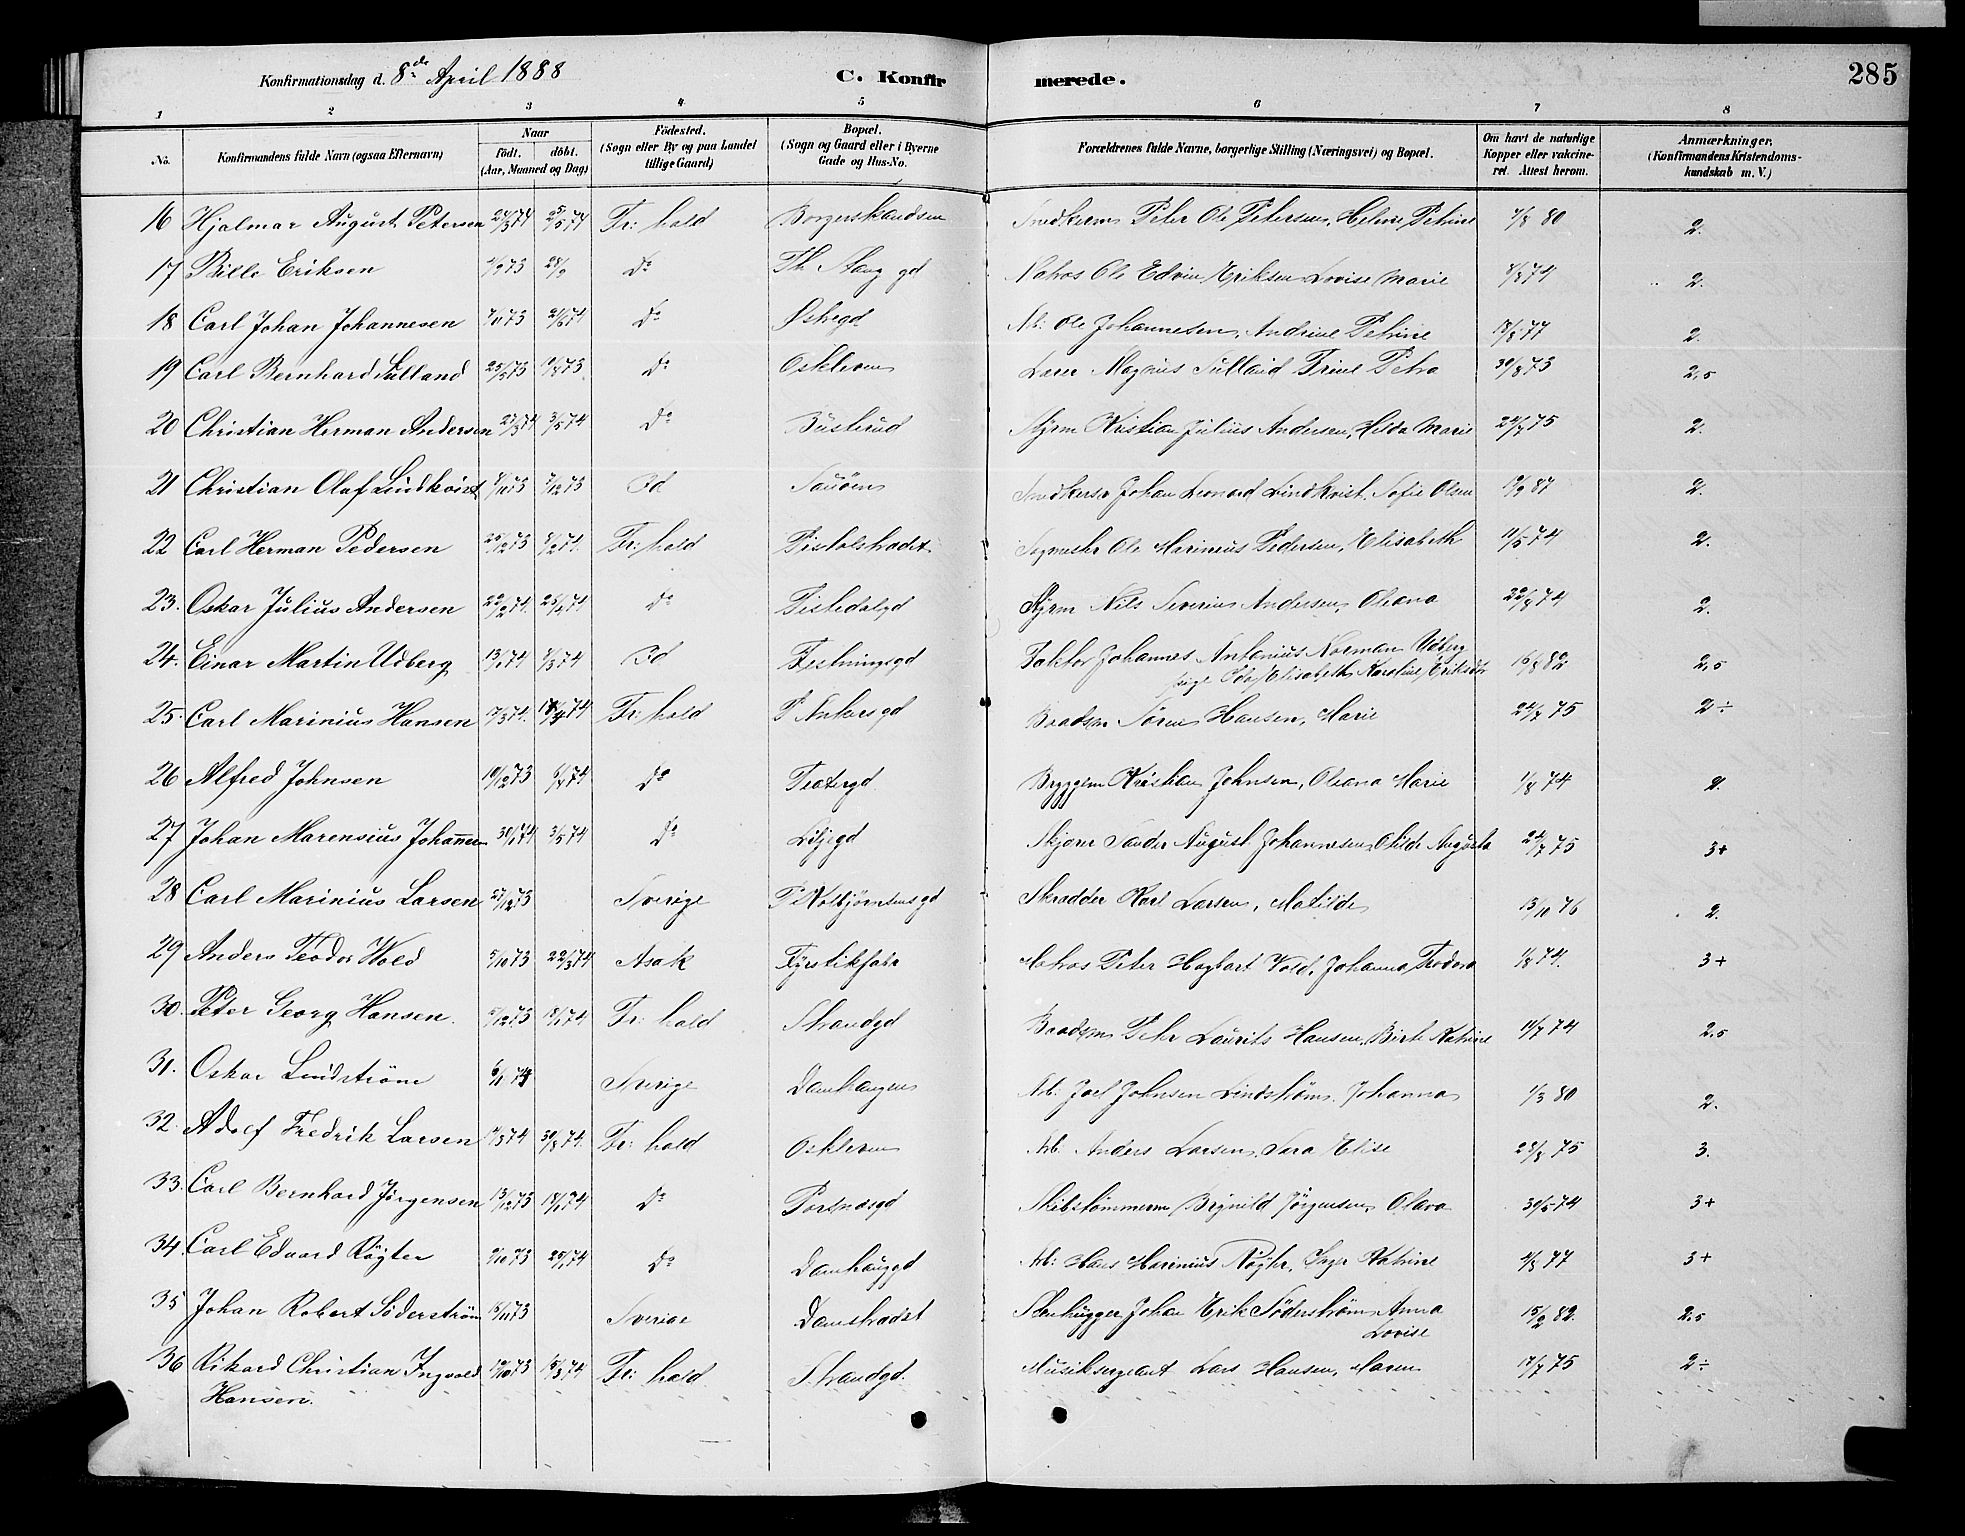 Konfirmationsdag d. 8de April 1888 C. Konfir merede. 285
1 2 3 4 5 6 7 8
No. Konfirmandens fulde Navn (ogsaa Efternavn) Naar født. døbt. (Aar, Maaned og Dag) Fødested. (Sogn eller By og paa Landet tillige Gaard) Bopæl. (Sogn og Gaard eller i Byerne Gade og Hus-No. Forældrenes fulde Navne, borgerlige Stilling (Næringsvei) og Bopæl. Om havt de naturlige Kopper eller vakcineret. Attest herom. Anmærkninger. (Konfirmandens Kristendomskundskab m. V.)
16 Hjalmar August Petersen 24/3 74 25/5 74 Fr: hald Snedkerm Peter Ole Petersen, Helene Petrine 80 2.
17 Bille Eriksen Do Th. Stang gd Matros Ole Edvin Eriksen Lovise Marie 74 2.
18 Carl Johan Johannesen 73 74 Do Arb: Ole Johannesen, Andrine Petrine 77 2.
19 Carl Bernhard Sulland 25/5 73 73 Do Oskleven Lærer Magnus Sulland Trine Petra 30/8 73 2,5
20 Christian Herman Andersen 27/3 74 3/5 74 Do Busterud Styrm Kristian Julius Andersen, Hilda Marie 24/7 75 2.
21 Christian Olaf Lindkvist 73 7/12 73 Id Sauøen Snedkersv Johan Leonard Lindkvist, Sofie Olsen 87 2.
22 Carl Herman Pedersen 73 74. Fr: hald Pistolstrædet Ole Marineus Pedersen, Elisabeth 11/5 74 2.
23. Oskar Julius Andersen 22/2 74. 74 Do Tistedalgd Styrm Nils Severin Andersen, Oleana 22/8 74 2.
24. Einar Martin Udberg 13/1 74 8/3 74 Id Festningsgd Faktor Johannes Antonius Norman Udberg
pige Ida Elisabeth Karoline Eriksdtr 82 2,5
25. Carl Marinius Hansen 74. 74 Fr: hald P Ankersgd Baadsm Søren Hansen, Marie 24/7 75 2 ÷
26 Alfred Johnsen 10/12 73 74 Do Teatergd. Bryggem Kristian Johnsen, Oleana Marie 1/8 74 2.
27 Johan Marensius Johannesen 30/1 74 3/5 74 Do Liljegd Sander August Johannesen, Otilde Augusta 24/7 75 3+
28 Carl Marinius Larsen 27/12 73 Sverige P Kolbjørnsensgd Skrædder Karl Larsen, Matilde 13/10 76 2.
29 Anders Teodor Wold 5/10 73 22/3 74 Asak Fyrstikfabr Matros Peter Hagbart Vold, Johanna Teodora 1/8 74. 3+
30. Peter Georg Hansen. 5/12 73 18/1 74 Fr: hald Strandgd Baadsm Peter Laurits Hansen, Birte Katrine 11/7 74 2,5
31. Oskar Lindstrøm Sverige Damhaugen Arb: Joel Johnsen Lindstrøm. Johanna 1/3 80 2.
32. Adolf Fredrik Larsen 74 30/8 74. Fr: hald Oskleven Arb. Anders Larsen, Sara Elise 23/8 75 3.
33. Carl Bernhard Jørgensen 13/12 73 18/1 74 Do Portnøsgd Skibstømmerm Brynild Jørgensen, Olava 30/5 74 3+
34. Carl Edvard Røgter 73 25/1 74 Do Damhauggd Arb: Hans Marinius Røgter, Inger Katrine 77 3+
35 Johan Robert Söderstrøm 15/11 73 Sverige Damstrædet Stenhugger Johan Erik Söderstrøm, Anna
Lovise 15/2 82. 2,5
36 Rikard Christian Ingvald 19/10 73 15/3 74 Fr: hald Strandgd. Musiksergeant Lars Hansen, Maren 17/7 75 2 ÷
Hansen.